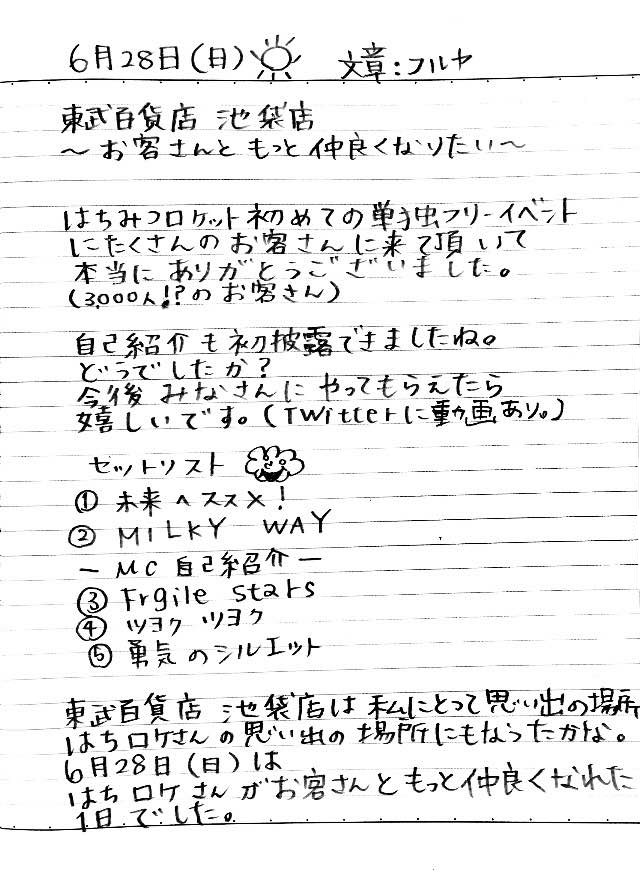 6月28日(日) 文章:フルヤ
東武百貨店 池袋店
〜お客さんともっと仲良くなりたい〜
はちみつロケット初めての単独フリーイベント
にたくさんのお客さんに来て頂いて
本当にありがとうございました。
(3,000人!?のお客さん)
自己紹介も初披露できましたね。
どうでしたか?
今後みなさんにやってもらえたら
嬉しいです。(Twitterに動画あり。)
セットリスト
① 未来へススメ!
② MILKY WAY
ー MC 自己紹介 ー
③ Frgile Stars
④ ツヨク ツヨク
⑤ 勇気のシルエット
東武百貨店 池袋店は私にとって思い出の場所
はちロケさんの思い出の場所にもなったかな。
6月28日(日)は
はちロケさんがお客さんともっと仲良くなれた
1日でした。